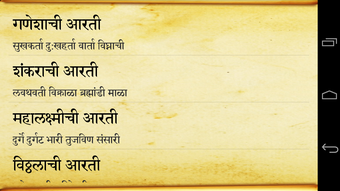 गणेशाची आरती
सुखकर्ता दु:खहर्ता वार्ता विघ्नाची
शंकराची आरती
लवथवती विक्राळा ब्रह्मांडी माळा
महालक्ष्मीची आरती
दुर्गे दुर्गट भारी तुजविण संसारी
विठ्ठलाची आरती